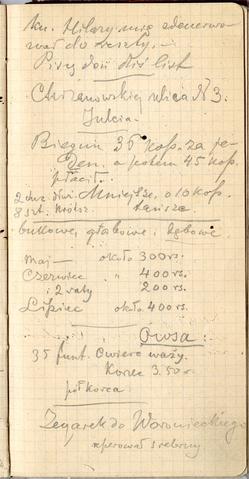 ku. Hilary mię zdenerwo-
wał do reszty.—
Pisz doń dziś list
Chrzanowskiej ulica № 3.
Julcia.
Biegun 35 kop. za je-
den. a potem 45 kop.
płacił.
2 dwe dni Mniejsze, o 10 kop
8 szt. tańsze
bukowe, grabowe, dębowe
maj — około 300 rs.
Czerwiec " 400 rs.
i 2 raty 200 rs.
Lipiec około 400 rs.
Owsa:
35 funt. ćwierć waży.
Korzec 3.50
pół korca
Zegarek do Woronieckiego
reperował srebrny